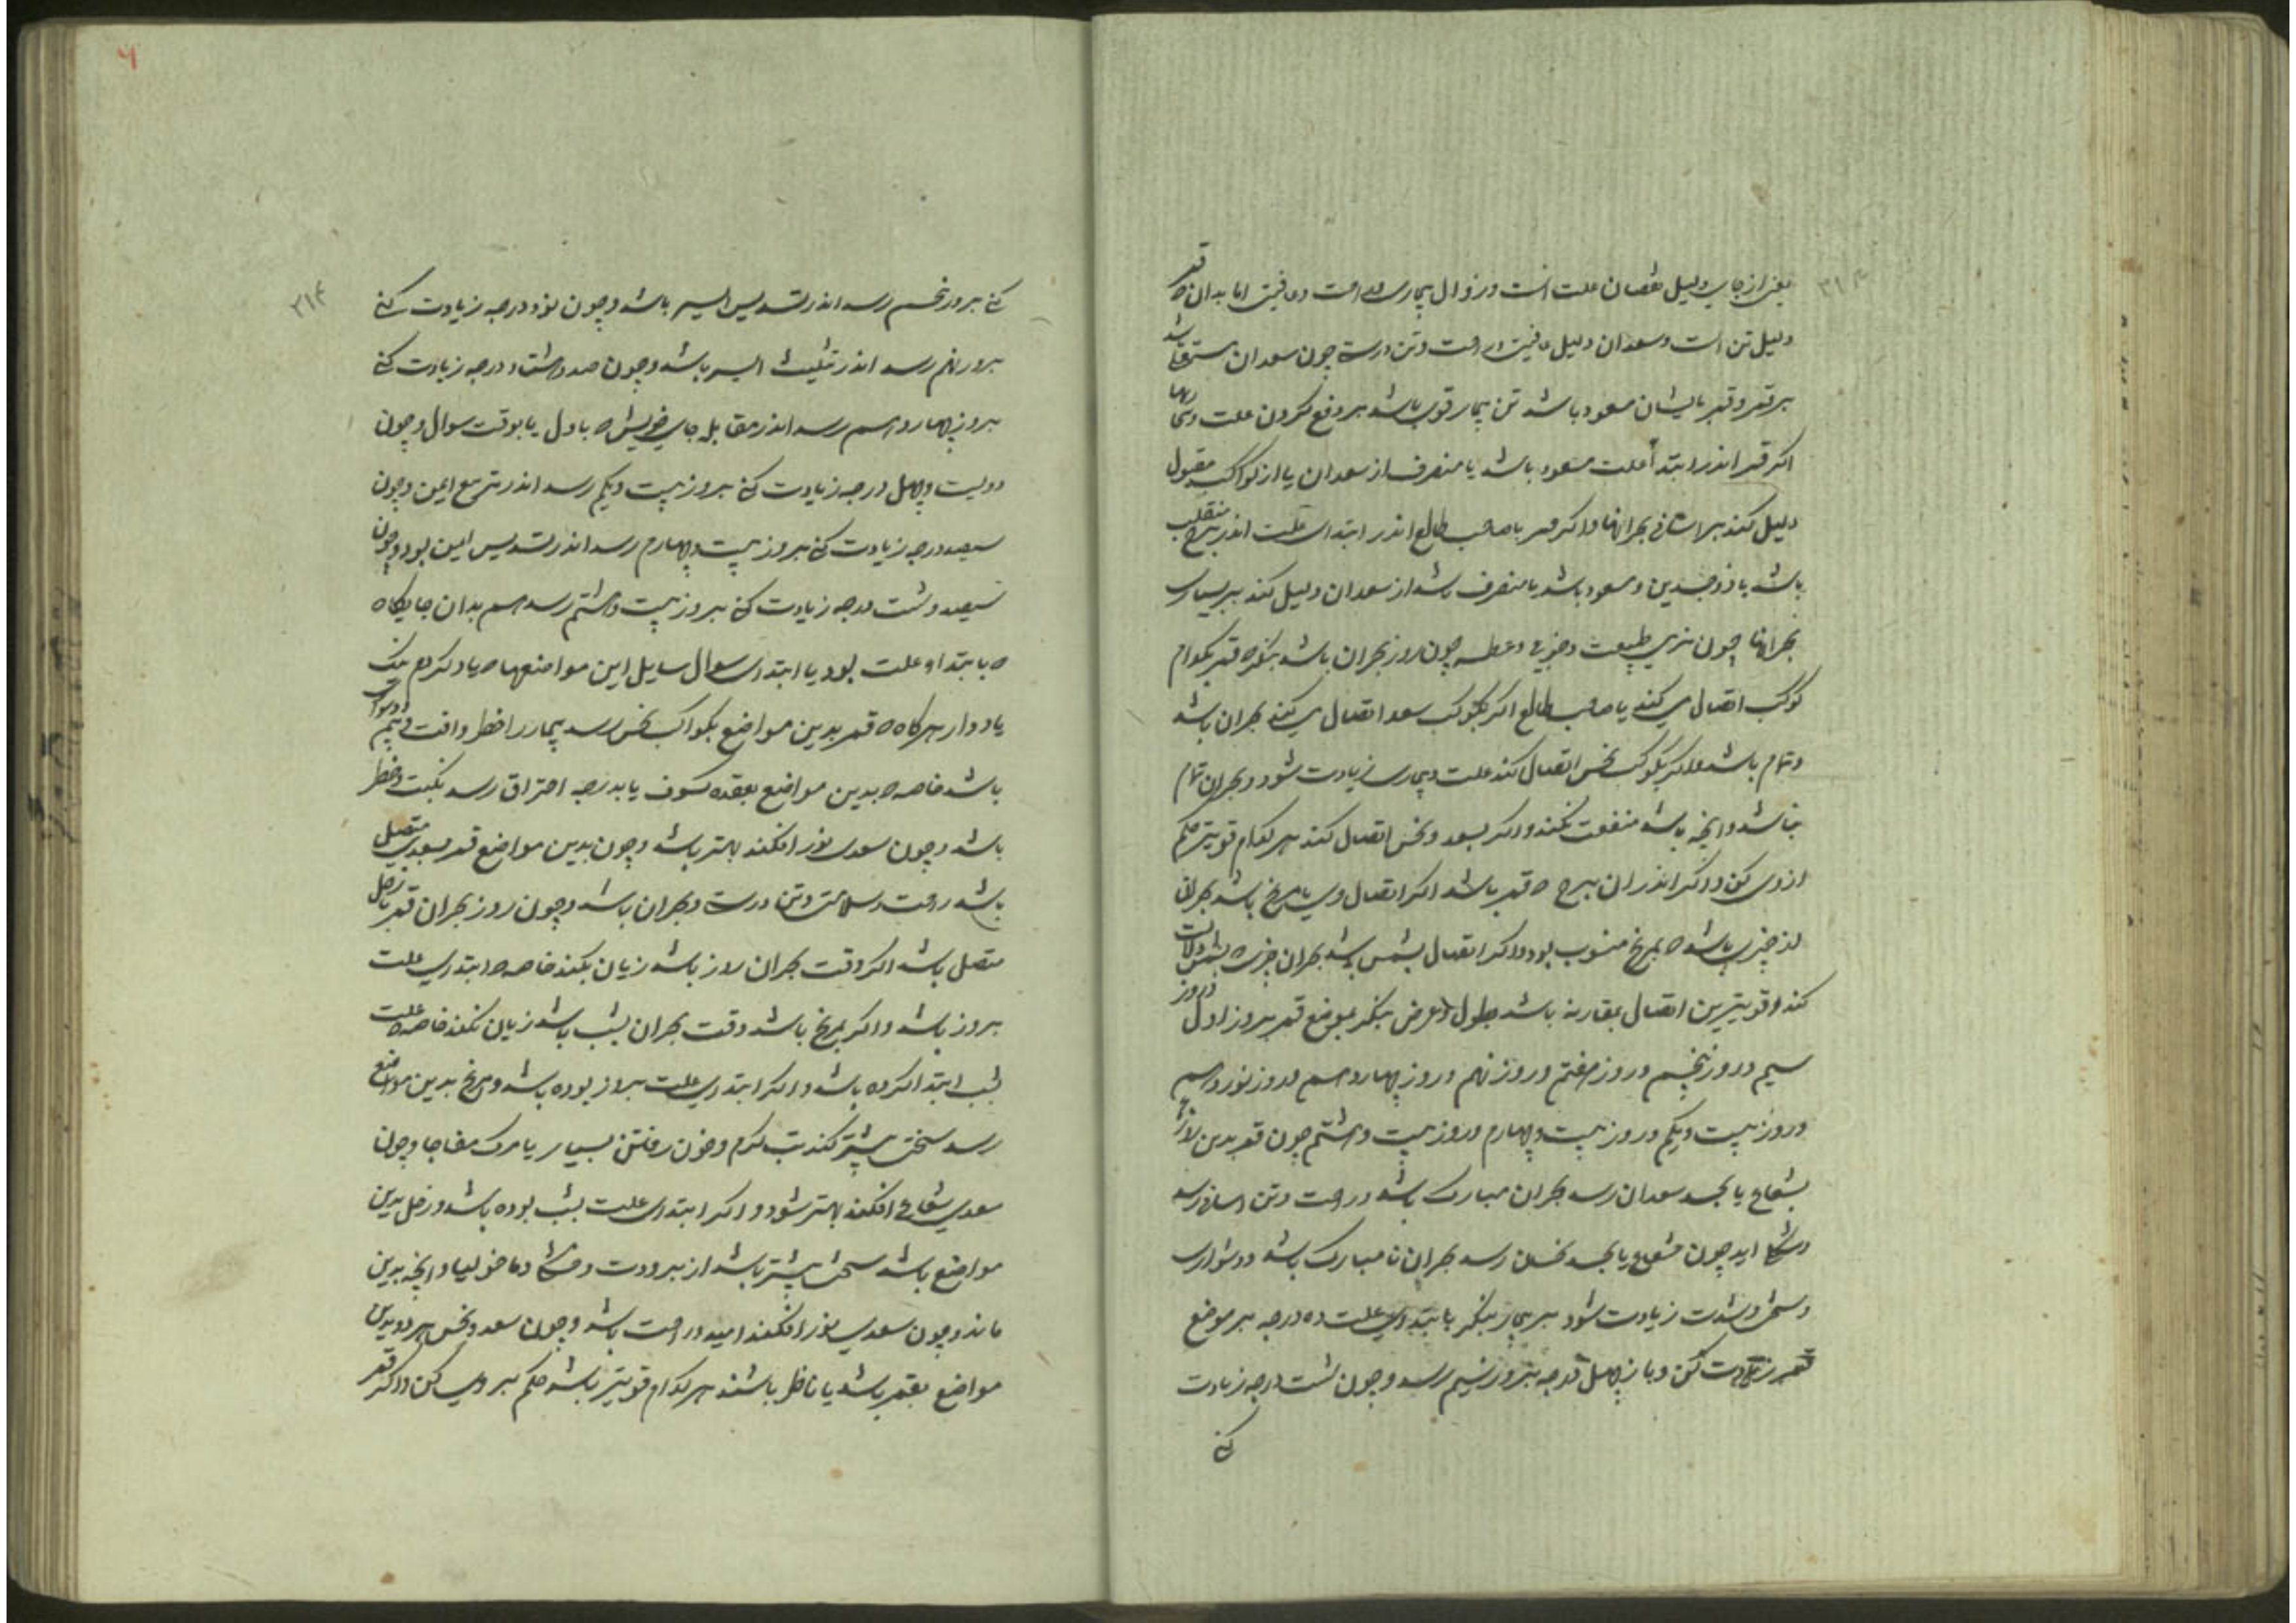 ۳۱۳
یعنی از جای دلیل نقصان علت است و زوال بیماری و راحت و عافیت اما بدان که قمر
دلیل تن است و سعدان دلیل عافیت و راحت و تن درستی چون سعدان مستولی باشد
بر قمر و قمر بایشان مسعود باشد تن بیمار قوی باشد بر دفع کردن علت و بیماریها
اکر قمر اندر ابتداء علت مسعود باشد یا منصرف از سعدان یا از کواکب مقبول
دلیل کند بر اسانی بحرانها و اکر قمر با صاحب طالع اندر ابتدای علت اندر برج منقلب
باشد یا ذوجسدین و مسعود باشد یا منصرف باشد از سعدان دلیل کند بر بسیاری
بحرانها چون نرمی طبیعت و خوی و عطسه چون روز بحران باشد بنکر که قمر بکدام
کوکب اتصال می کند یا صاحب طالع اکر بکوکب سعد اتصال می کند بحران باشد
و تمام باشد و اکر بکوکب نحس اتصال کند علت و بیماری زیادت شود و بحران تمام
نباشد و انچه باشد منفعت نکند و اکر بسعد و نحس اتصال کند هر کدام قویتر حکم
از وی کن و اکر اندران برج که قمر باشد اکر اتصال وی با مریخ باشد بحرانی
از چیزی باشد که بمریخ منسوب بود و اکر اتصال بشمس باشد بحران چیزی که بشمس دلالت
کند و قویترین اتصال مقارنه باشد بطول و عرض بنکر بموضع قمر بروز اول و روز
سیم و روز پنجم و روز هفتم و روز نهم و روز چهاردهم و روز نوزدهم
و روز بیست و یکم و روز بیست و چهارم و روز بیست و هشتم چون قمر بدین روزها
بشعاع یا بجسد سعدان رسد بحران مبارک باشد و راحت و تن اسانی رسد
و شفا اید چون بشعاع یا بجسد نحسان رسد بحران نا مبارک باشد و دشواری
و سختی و شدت زیادت شود بر بیمار بنکر بابتدای علت ده درجه بر موضع
قمر زیادت کن و باز چهل درجه بروز سیم رسد و چون شست درجه زیادت
کنی
۳۱۴
کنی بروز پنجم رسد اندر تسدیس ایسر باشد و چون نود درجه زیادت کنی
بروز نهم رسد اندر تثلیث ایسر باشد و چون صد و هشتاد درجه زیادت کنی
بروز چهاردهم رسد اندر مقابله جای خویش که باول یا بوقت سوال و چون
دویست و چهل درجه زیادت کنی بروز بیست و یکم رسد اندر تربیع ایمن و چون
سیصد درجه زیادت کنی بروز بیست و چهارم رسد اندر تسدیس ایمن بود و چون
سیصد و شست درجه زیادت کنی بروز بیست و هشتم رسد هم بدان جایکاه
که بابتداء علت بود یا ابتدای سوال سایل این موضعها که یاد کردم نیک
یاد دار هرکاه که قمر بدین مواضع بکواکب نحس رسد بیمار را خطر و افت و بیم و دشواری
باشد خاصه که بدین مواضع بعقده کسوف یا بدرجه احتراق رسد نکبت و خطر
باشد و چون سعدی نور افکند بهتر باشد و چون بدین مواضع قمر بسعدی متصل
باشد راحت و سلامتی و تن درستی و بحران باشد و چون روز بحران قمر بزحل
متصل باشد اکر وقت بحران روز باشد زیان نکند خاصه که ابتدای علت
بروز باشد و اکر بمریخ باشد و وقت بحران بشب باشد زیان نکند خاصه که علت
بشب ابتدا کرده باشد و اکر ابتدای علت بروز بوده باشد و مریخ بدین مواضع
رسد سختی بیشتر کند تب کرم و خون رفتن بسیار یا مرک مفاجا و چون
سعدی شعاعی افکند بهتر شود و اکر ابتدای علت بشب بوده باشد و زحل بدین
مواضع باشد سختی بیشتر باشد از برودت و و ماخولیا و انچه بدین
ماند و چون سعدی نور افکند امید و راحت باشد و چون سعد و نحس هر دو بدین
مواضع بقمر باشد یا ناظر باشند هر کدام قویتر باشد حکم بر وی کن و اکر قمر